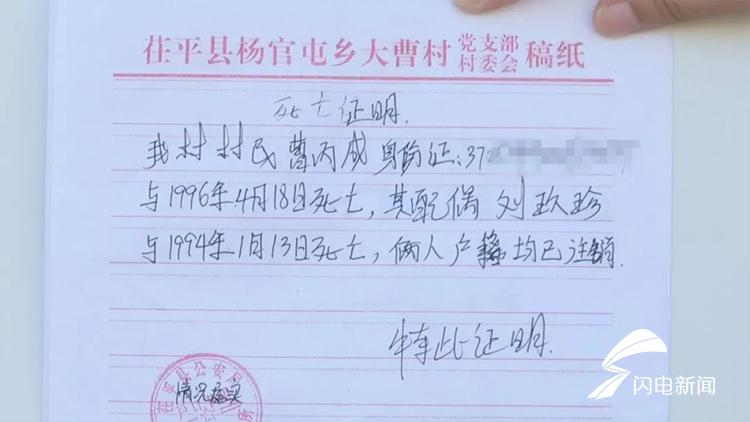 茌平县杨官屯乡大曹村党支部村委会稿纸
死亡证明.
我村村民曹丙成身份证:37
与1996年4月18日死亡,其配偶刘玖珍
与1994年1月13日死亡,俩人户籍均已注销.
特此证明.
茌平县公安局
情况属实
闪电新闻